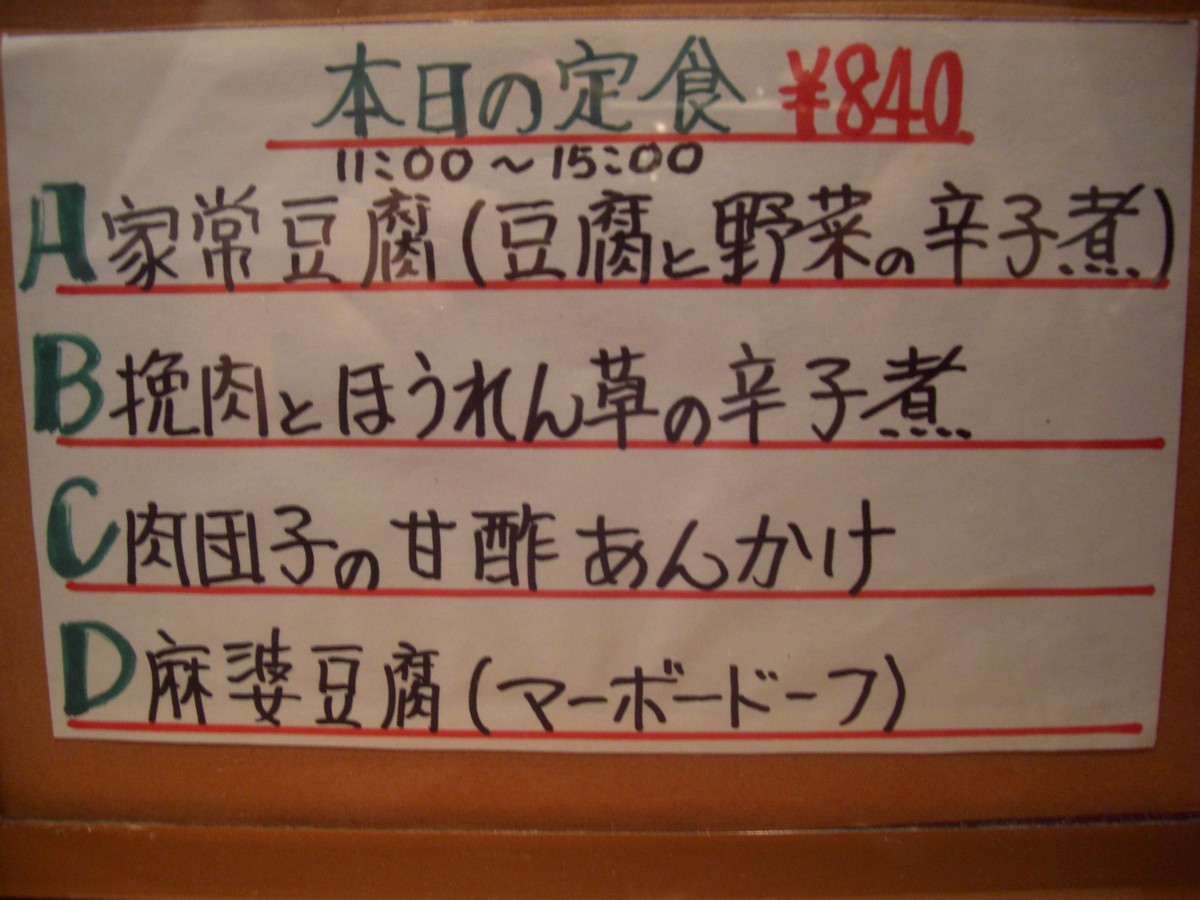 本日の定食 ¥840
11:00～15:00
A 家常豆腐(豆腐と野菜の辛子煮)
B 挽肉とほうれん草の辛子煮
C 肉団子の甘酢あんかけ
D 麻婆豆腐(マーボードーフ)